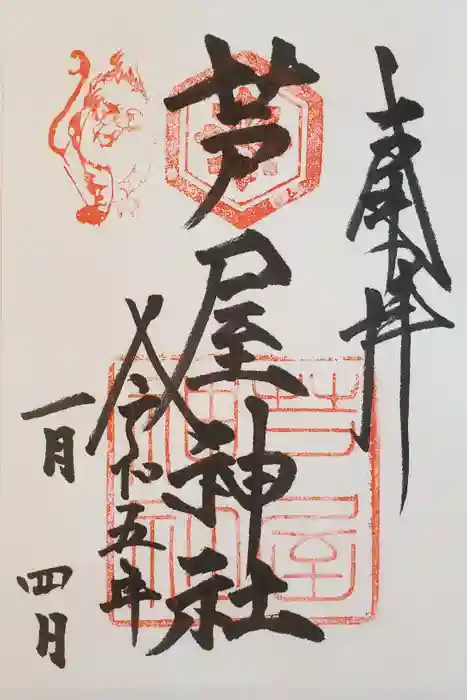 奉拝
芦屋神社
令和五年
一月
四日
芦屋
神社